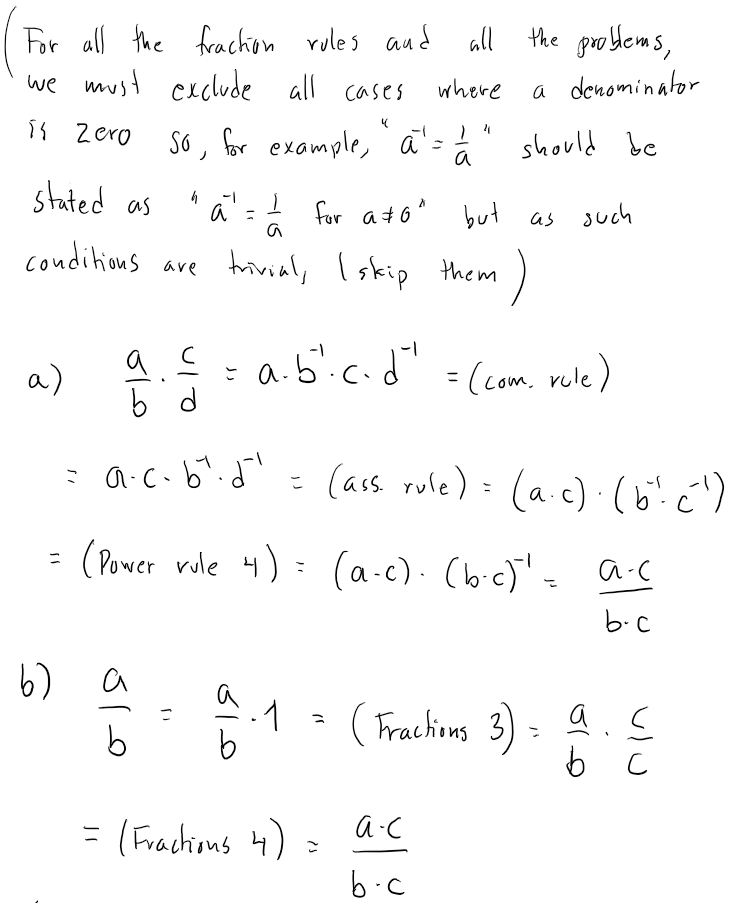 (For all the fraction rules and all the problems,
we must exclude all cases where a denominator
is zero so, for example, "a⁻¹ = 1/a" should be
stated as "a⁻¹ = 1/a for a ≠ 0" but as such
conditions are trivial, I skip them)
a) a/b · c/d = a · b⁻¹ · c · d⁻¹ = (com. rule)
= a · c · b⁻¹ · d⁻¹ = (ass. rule) = (a · c) · (b⁻¹ · c⁻¹)
= (Power rule 4) = (a · c) · (b · c)⁻¹ = a · c / b · c
b) a/b = a/b · 1 = (Fractions 3) = a/b · c/c
= (Fractions 4) = a · c / b · c